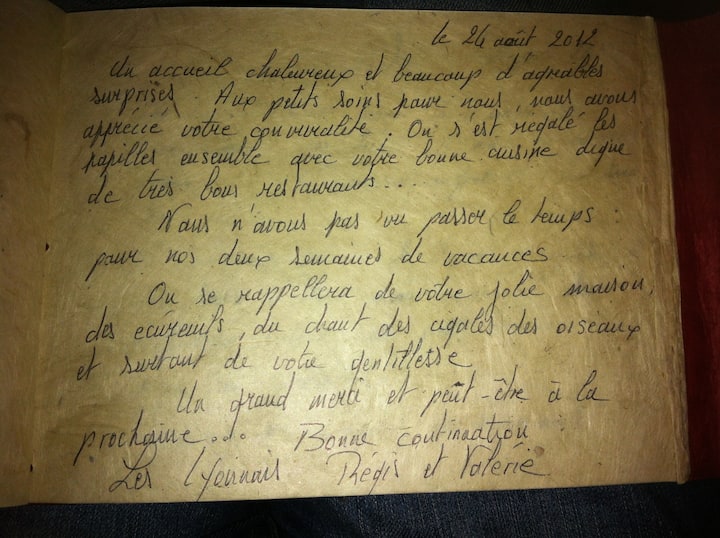 le 24 août 2012
Un accueil chaleureux et beaucoup d'agréables
surprises. Aux petits soins pour nous, nous avons
apprécié votre convivialité. On s'est régalé les
papilles ensemble avec votre bonne cuisine digne
de très bons restaurants....
Nous n'avons pas vu passer le temps
pour nos deux semaines de vacances
On se rappellera de votre jolie maison,
des écureuils, du chant des cigales des oiseaux
et surtout de votre gentillesse
Un grand merci et peût-être à la
prochaine... Bonne continuation
Les Lyonnais Régis et Valérie